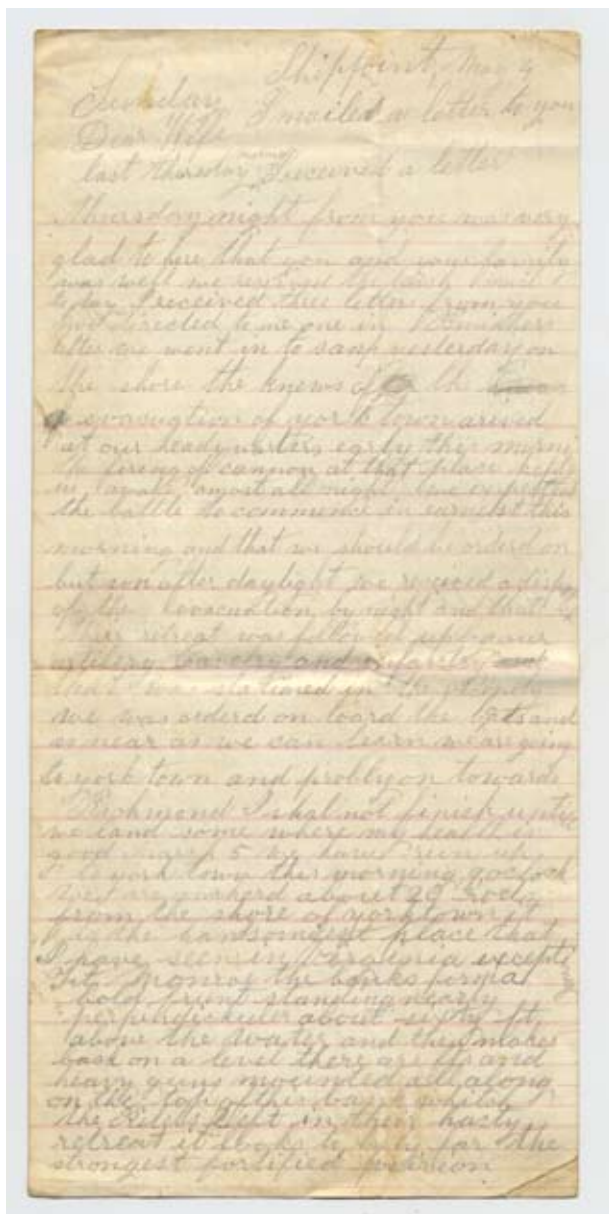 Shippoint, May 4
Sunday I mailed a letter to you
Dear Wife
last thursday morning I received a letter
thursday night from you was very
glad to here that you and your family
was well we received the mail
to day I received three letters from you
two directed to me one in
letter we went in to camp yesterday on
the shore the knews of the
evacuation of york town arived
at our headquarters early this morning
the firing of cannon at that place kept
us awake amost all night we expected
the battle to commence in earnest this
morning and that we should be orderd on
but soon after daylight we received a
of the evacuation by night and that
their retreat was followed up
artilery cavelry and infantry
that was stationed in the
we was orderd on board the boats and
as near as we can learn we are going
to york town and probly on towards
Richmond I shal not finish until
we land some where my health is
good 5 we have run up
to york town this morning 9 oclock
we are anchord about 20 rods
from the shore of yorktown it
is the hansomest place that
I have seen in virginia except
Ft. Monroe the banks form a
bold front standing nearly
perpendickuler about sixty ft
above the water and then makes
back on a level there are and
heavy guns mounted all along
on the top of this bank which
the Rebels left in their hasty
retreat it looks to be by far the
strongest fortified